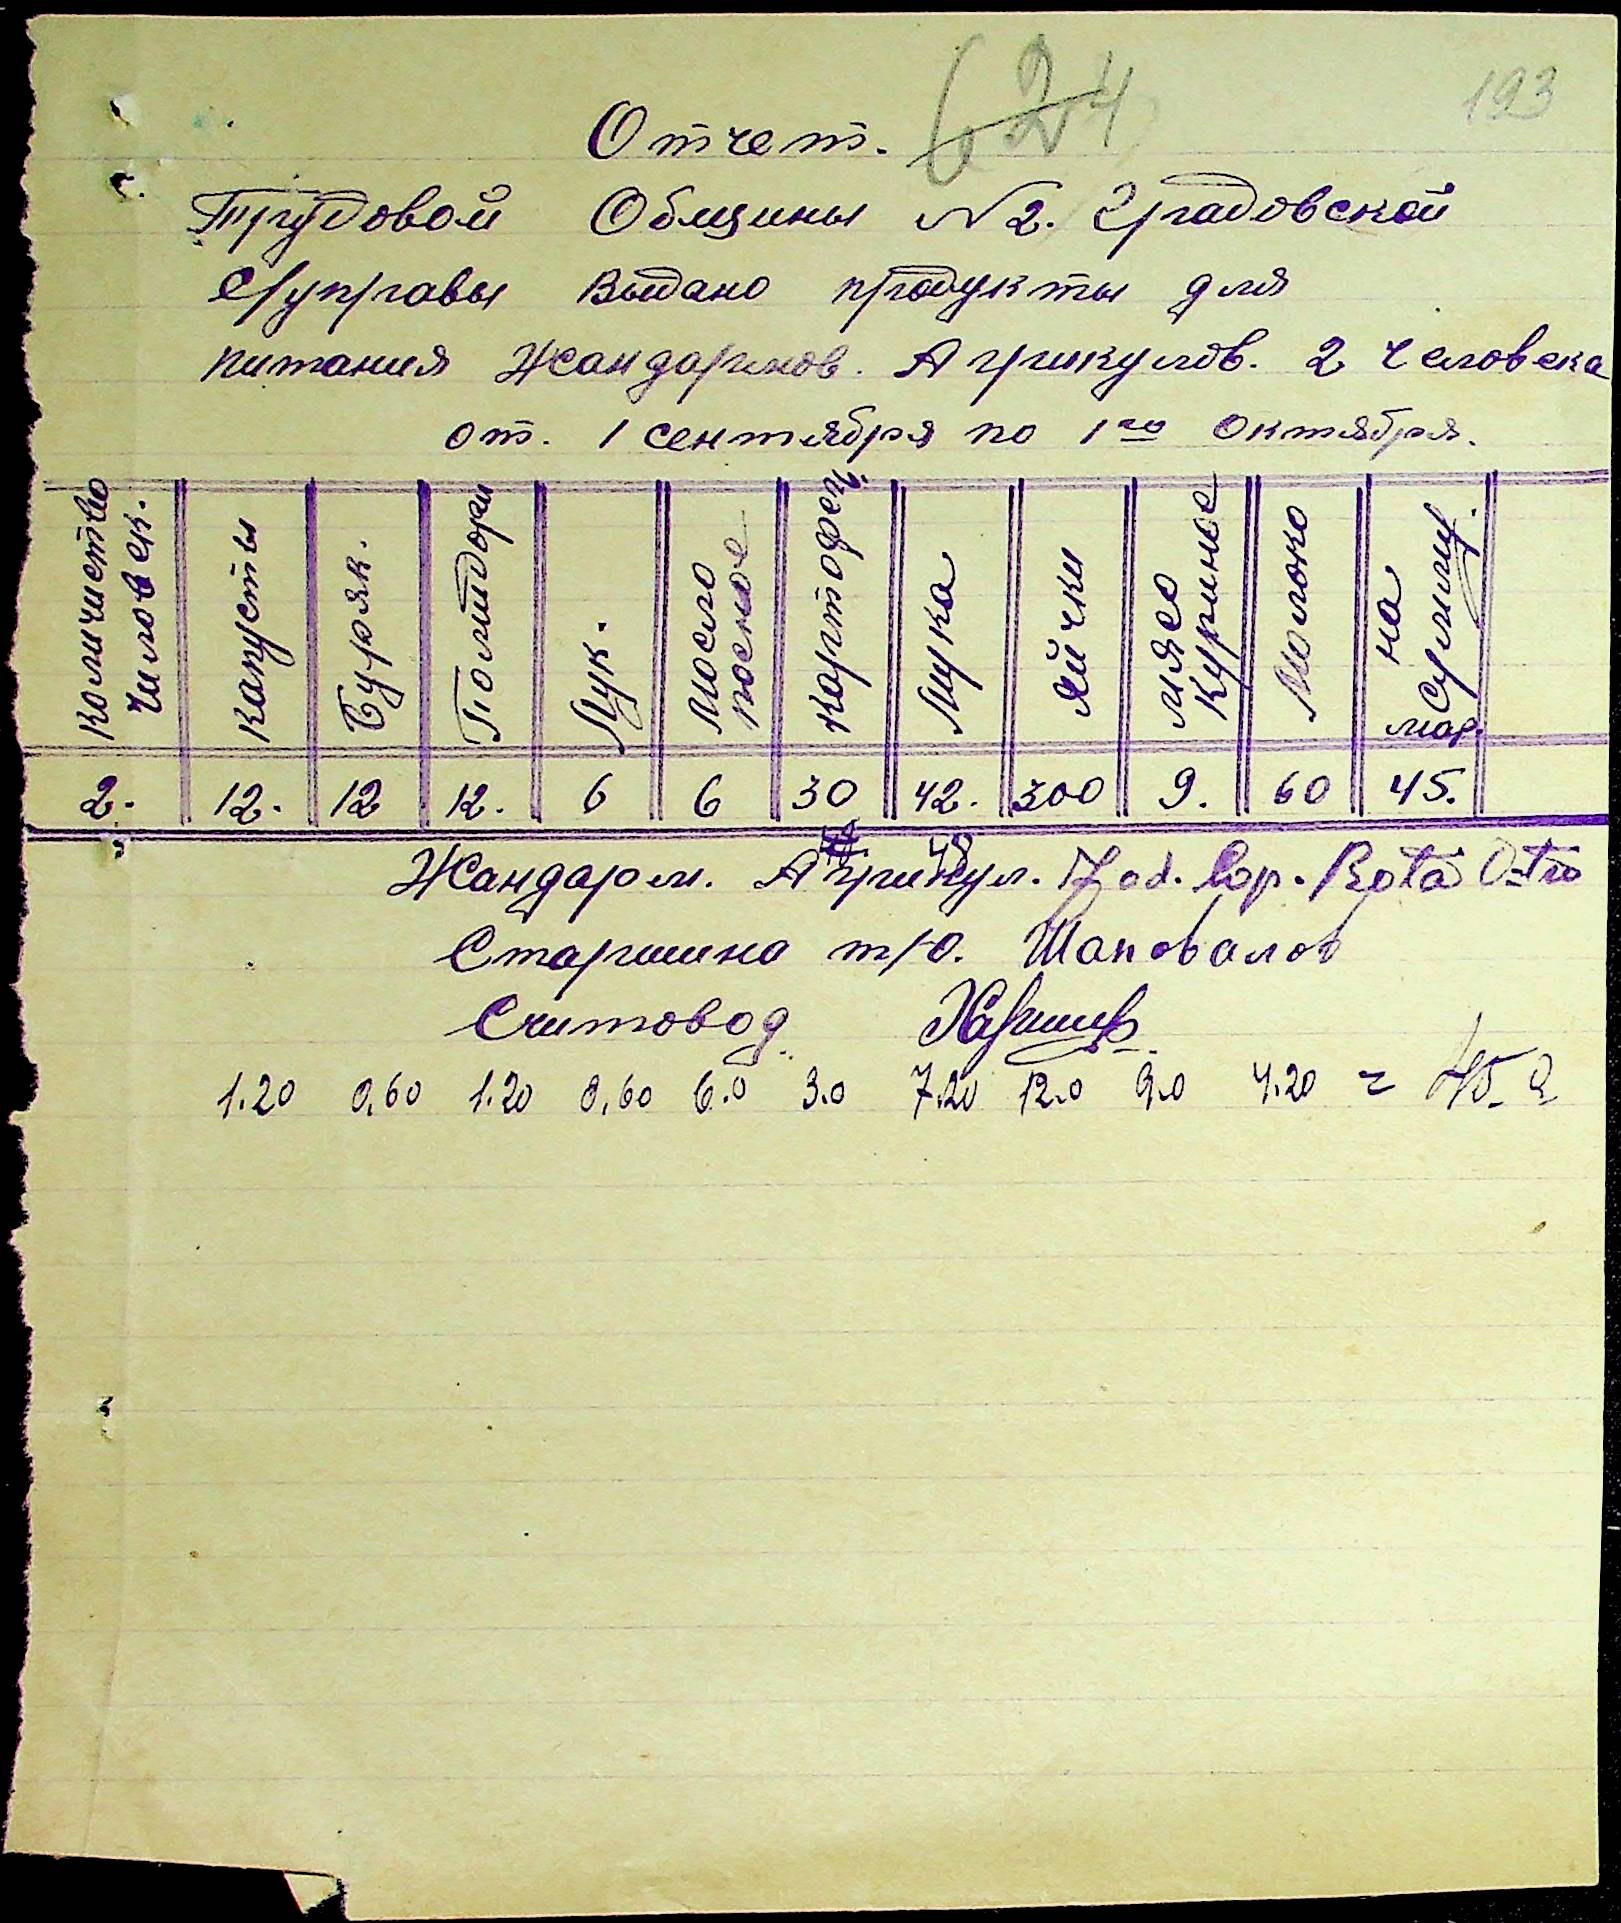 624
193
Отчет.
Трудовой Общины №2. Градовской
С/управы выдано продукты для
питания Жандармов. Агрикулов. 2 человека
от. 1 сентября по 1го Октября.
количиство человек. капусты Буряк. Помидоры Лук. Масло посное картофеля Мука яйчки мясо куринное Молоко на Сумму. мар.
2. 12. 12 12. 6 6 30 42. 300 9. 60 45.
Жандарм. Агрикул. Rota
Старшина т/о. Шаповалов
Считовод
1.20 0,60 1.20 0,60 6.0 3.0 7.20 12.0 9.0 4.20 = 45